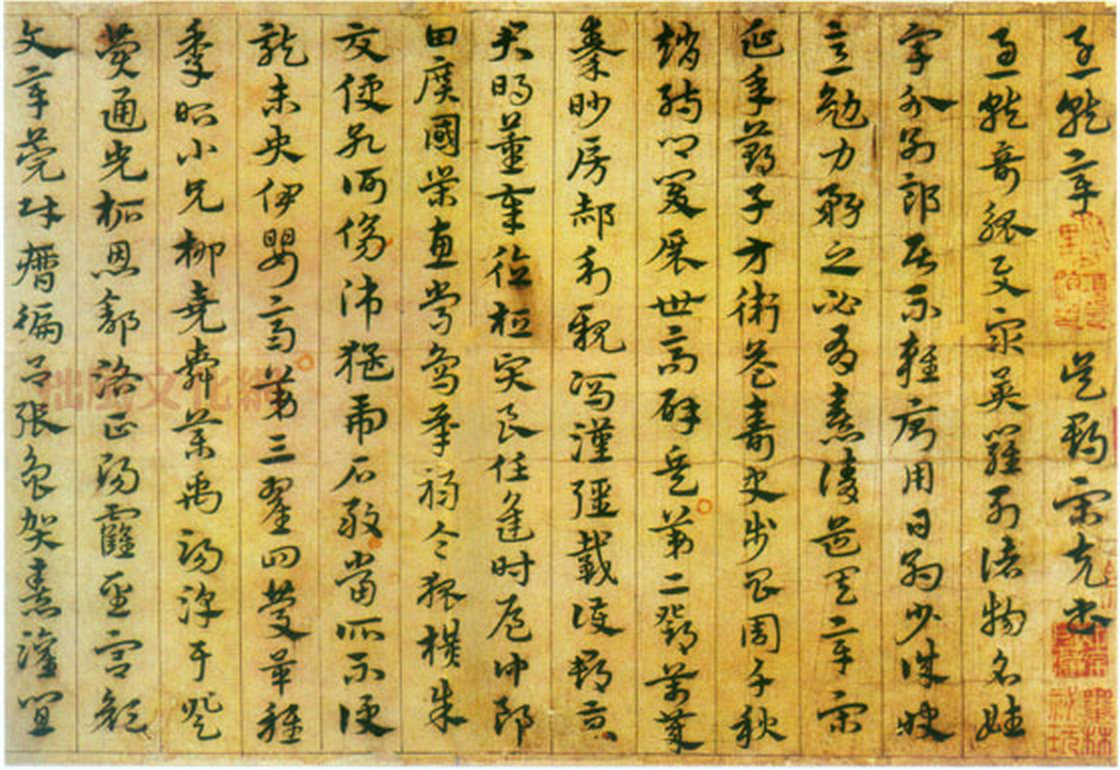 急就章 吳郡宋克書
急就奇觚與衆異羅列諸物名姓
字分別部居不雜廁用日約少誠快
意勉力務之必有憙請道其章宋
延年鄭子方衛益壽史步昌周千秋
趙孺卿爰展世高辟兵第二鄧萬歲
秦眇房郝利親馮漢彊戴護郡景
君明董奉德桓賢良任逢時侯仲郎
田廣國榮惠常烏承祿令狐橫朱
交便孔何傷師猛虎石敢當所不侵
龍未央伊嬰齊第三翟回慶畢稚
季昭小兄柳堯舜藥禹湯淳于登
費通光柘恩舒路正陽霍聖宮顏
文章莞財歷徧呂張魚賀憙灌宜
拙風文化網